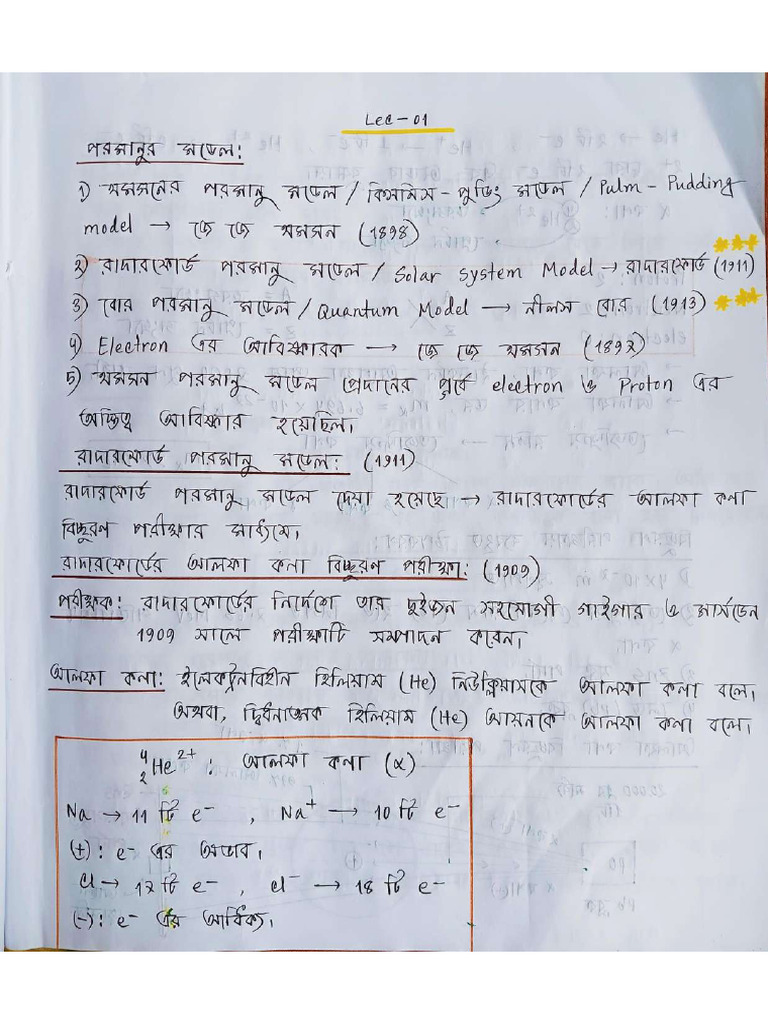 Lec-01
পরমানুর মডেল:
1) থমসনের পরমানু মডেল / কিসমিস-পুডিং মডেল / Pulm-Pudding
model → জে জে থমসন (1898)
2) রাদারফোর্ড পরমানু মডেল / Solar System Model → রাদারফোর্ড (1911)
3) বোর পরমানু মডেল / Quantum Model → নীলস বোর (1913)
4) Electron এর আবিষ্কারক → জে জে থমসন (1897)
5) থমসন পরমানু মডেল প্রদানের পূর্বে electron ও Proton এর
অস্তিত্ব আবিষ্কার হয়েছিল।
রাদারফোর্ড পরমানু মডেল: (1911)
রাদারফোর্ড পরমানু মডেল দেয়া হয়েছে → রাদারফোর্ডের আলফা কনা
বিচ্ছুরণ পরীক্ষার মাধ্যমে।
রাদারফোর্ডের আলফা কনা বিচ্ছুরণ পরীক্ষা: (1909)
পরীক্ষক: রাদারফোর্ডের নির্দেশে তার দুইজন সহযোগী গাইগার ও মার্সডেন
1909 সালে পরীক্ষাটি সম্পাদন করেন।
আলফা কনা: ইলেকট্রনবিহীন হিলিয়াম (He) নিউক্লিয়াসকে আলফা কনা বলে।
অথবা, দ্বিধনাত্মক হিলিয়াম (He) আয়নকে আলফা কনা বলে।
⁴₂He²⁺: আলফা কনা (α)
Na → 11 টি e⁻ , Na⁺ → 10 টি e⁻
(+): e⁻ এর অভাব।
Cl → 17 টি e⁻ , Cl⁻ → 18 টি e⁻
(-): e⁻ এর আধিক্য।